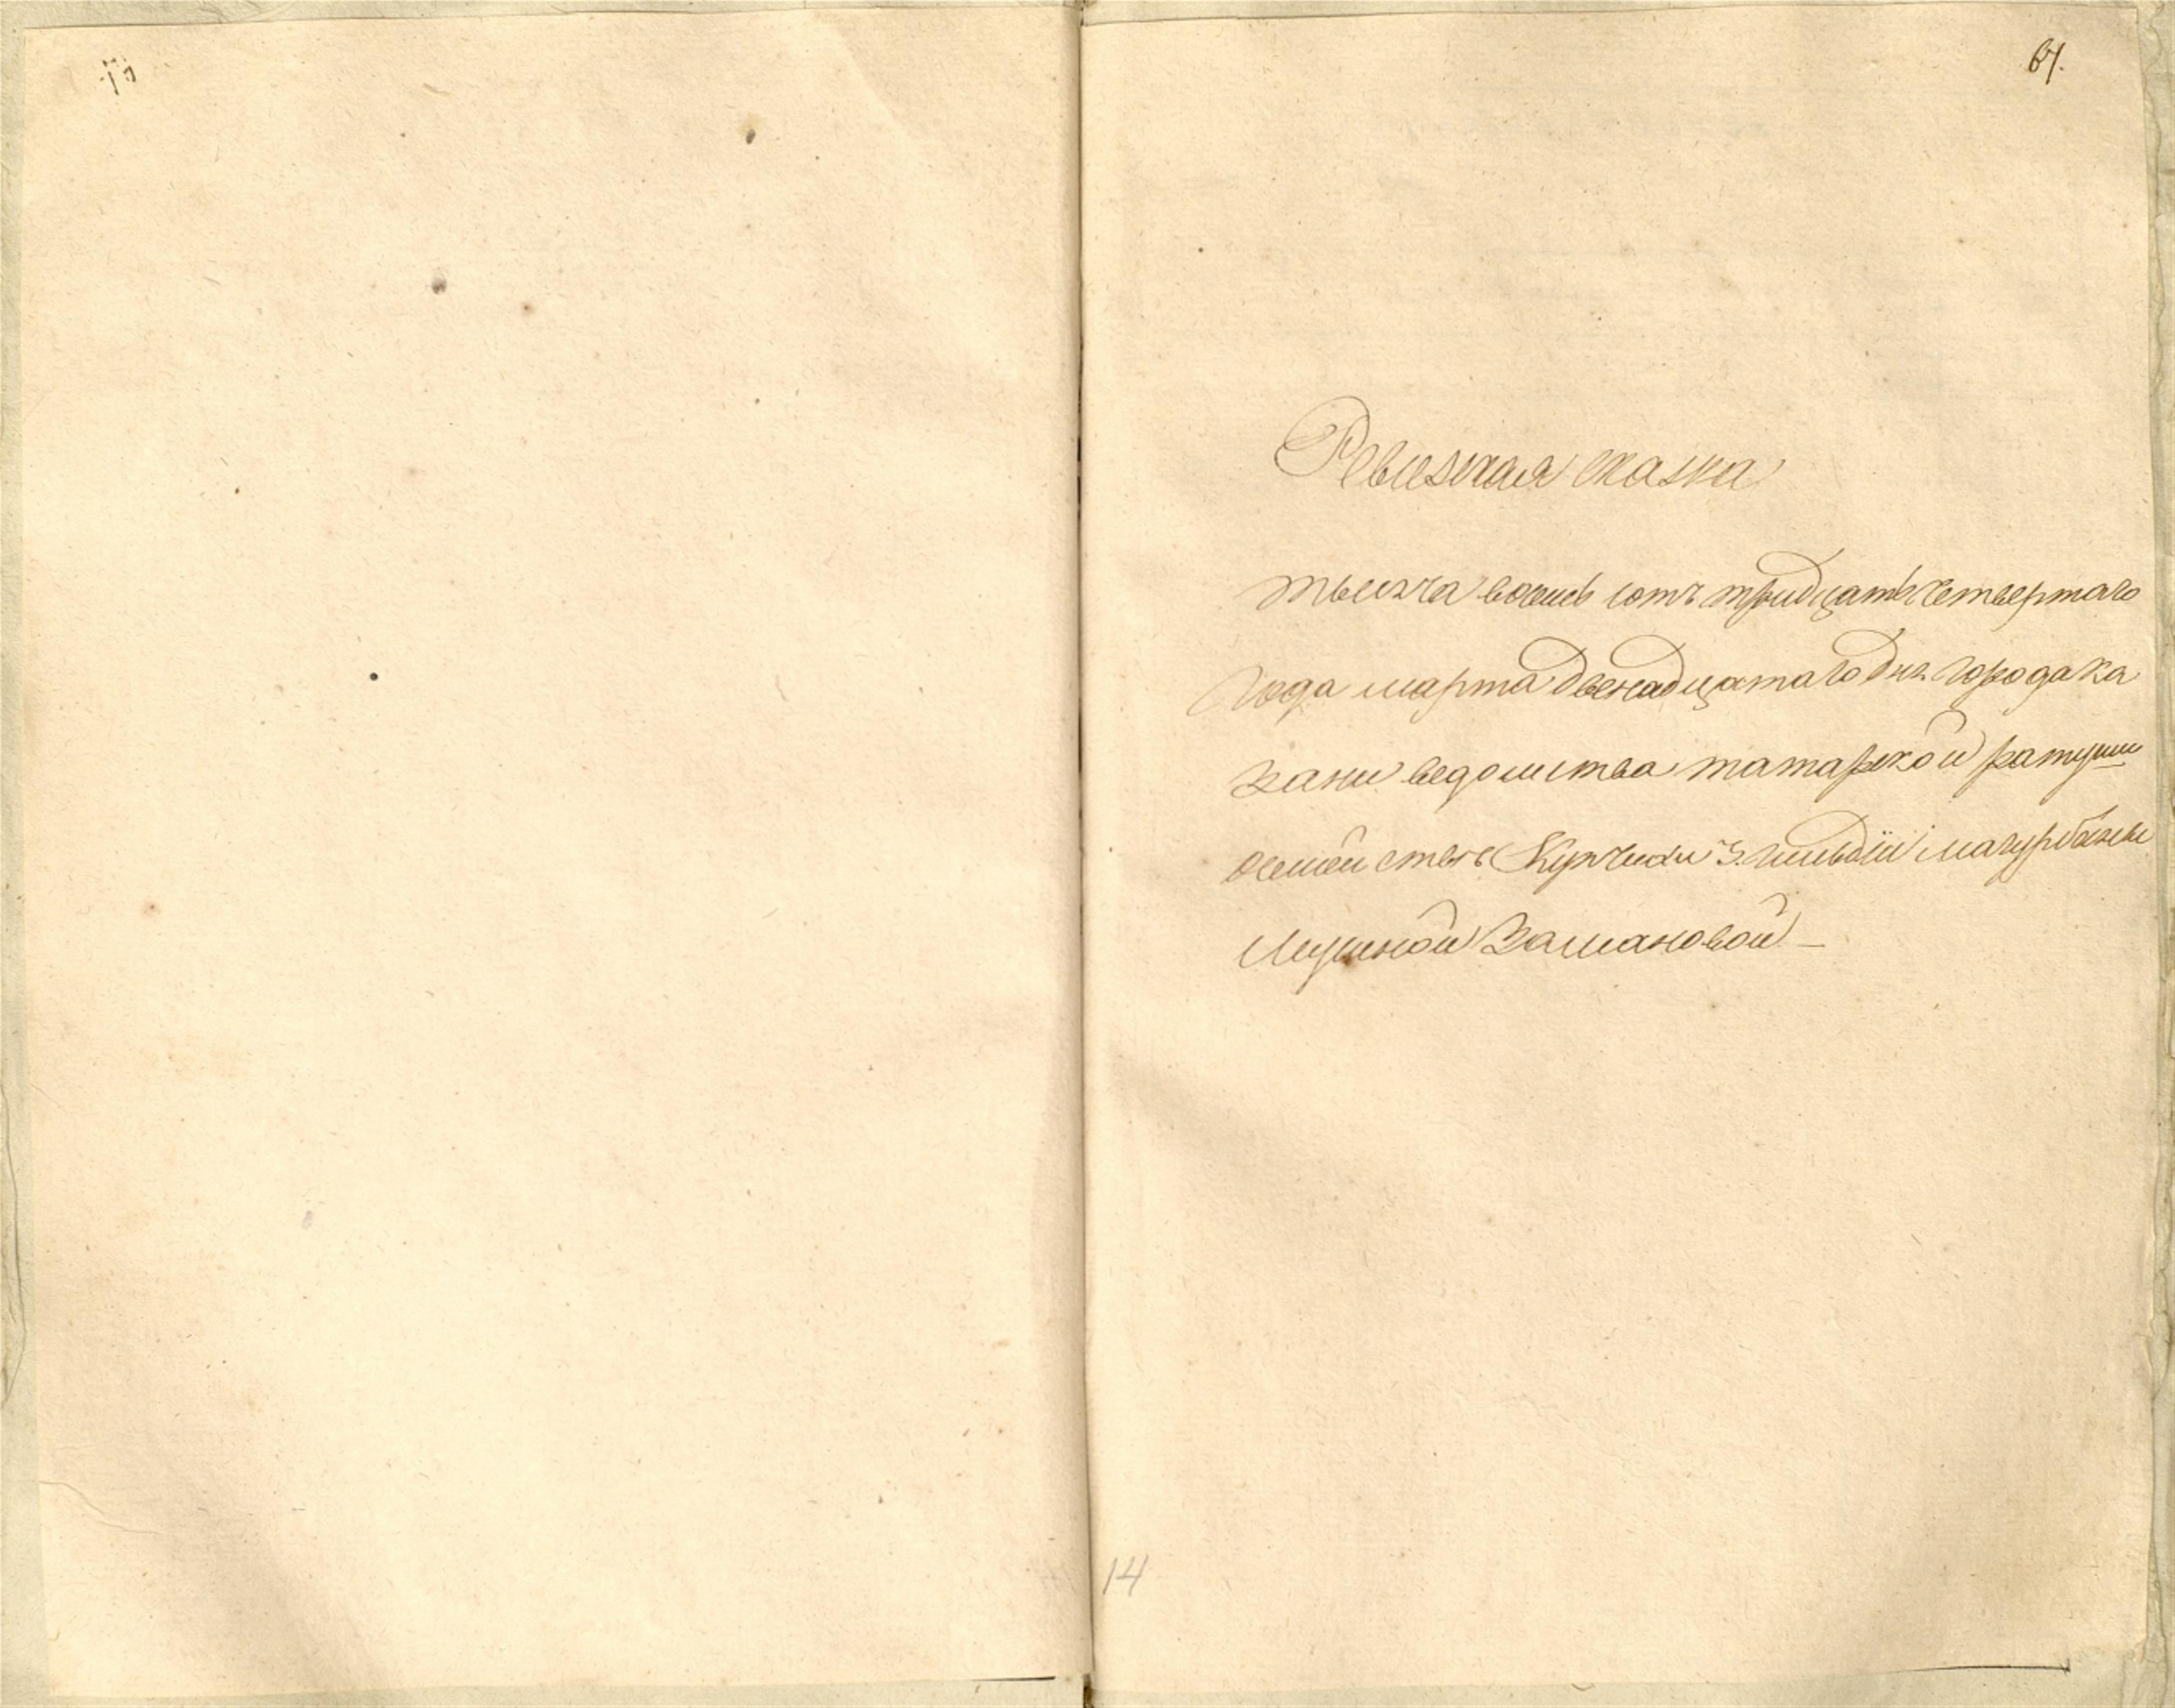 61.
Ревизская сказка
тысяча восемь сотъ тридцать четвертаго
года марта двенадцатаго дня города ка
зани ведомства татарской ратуши
осемействе Купчихи 3. гильдіи
Мусиной Замановой
14